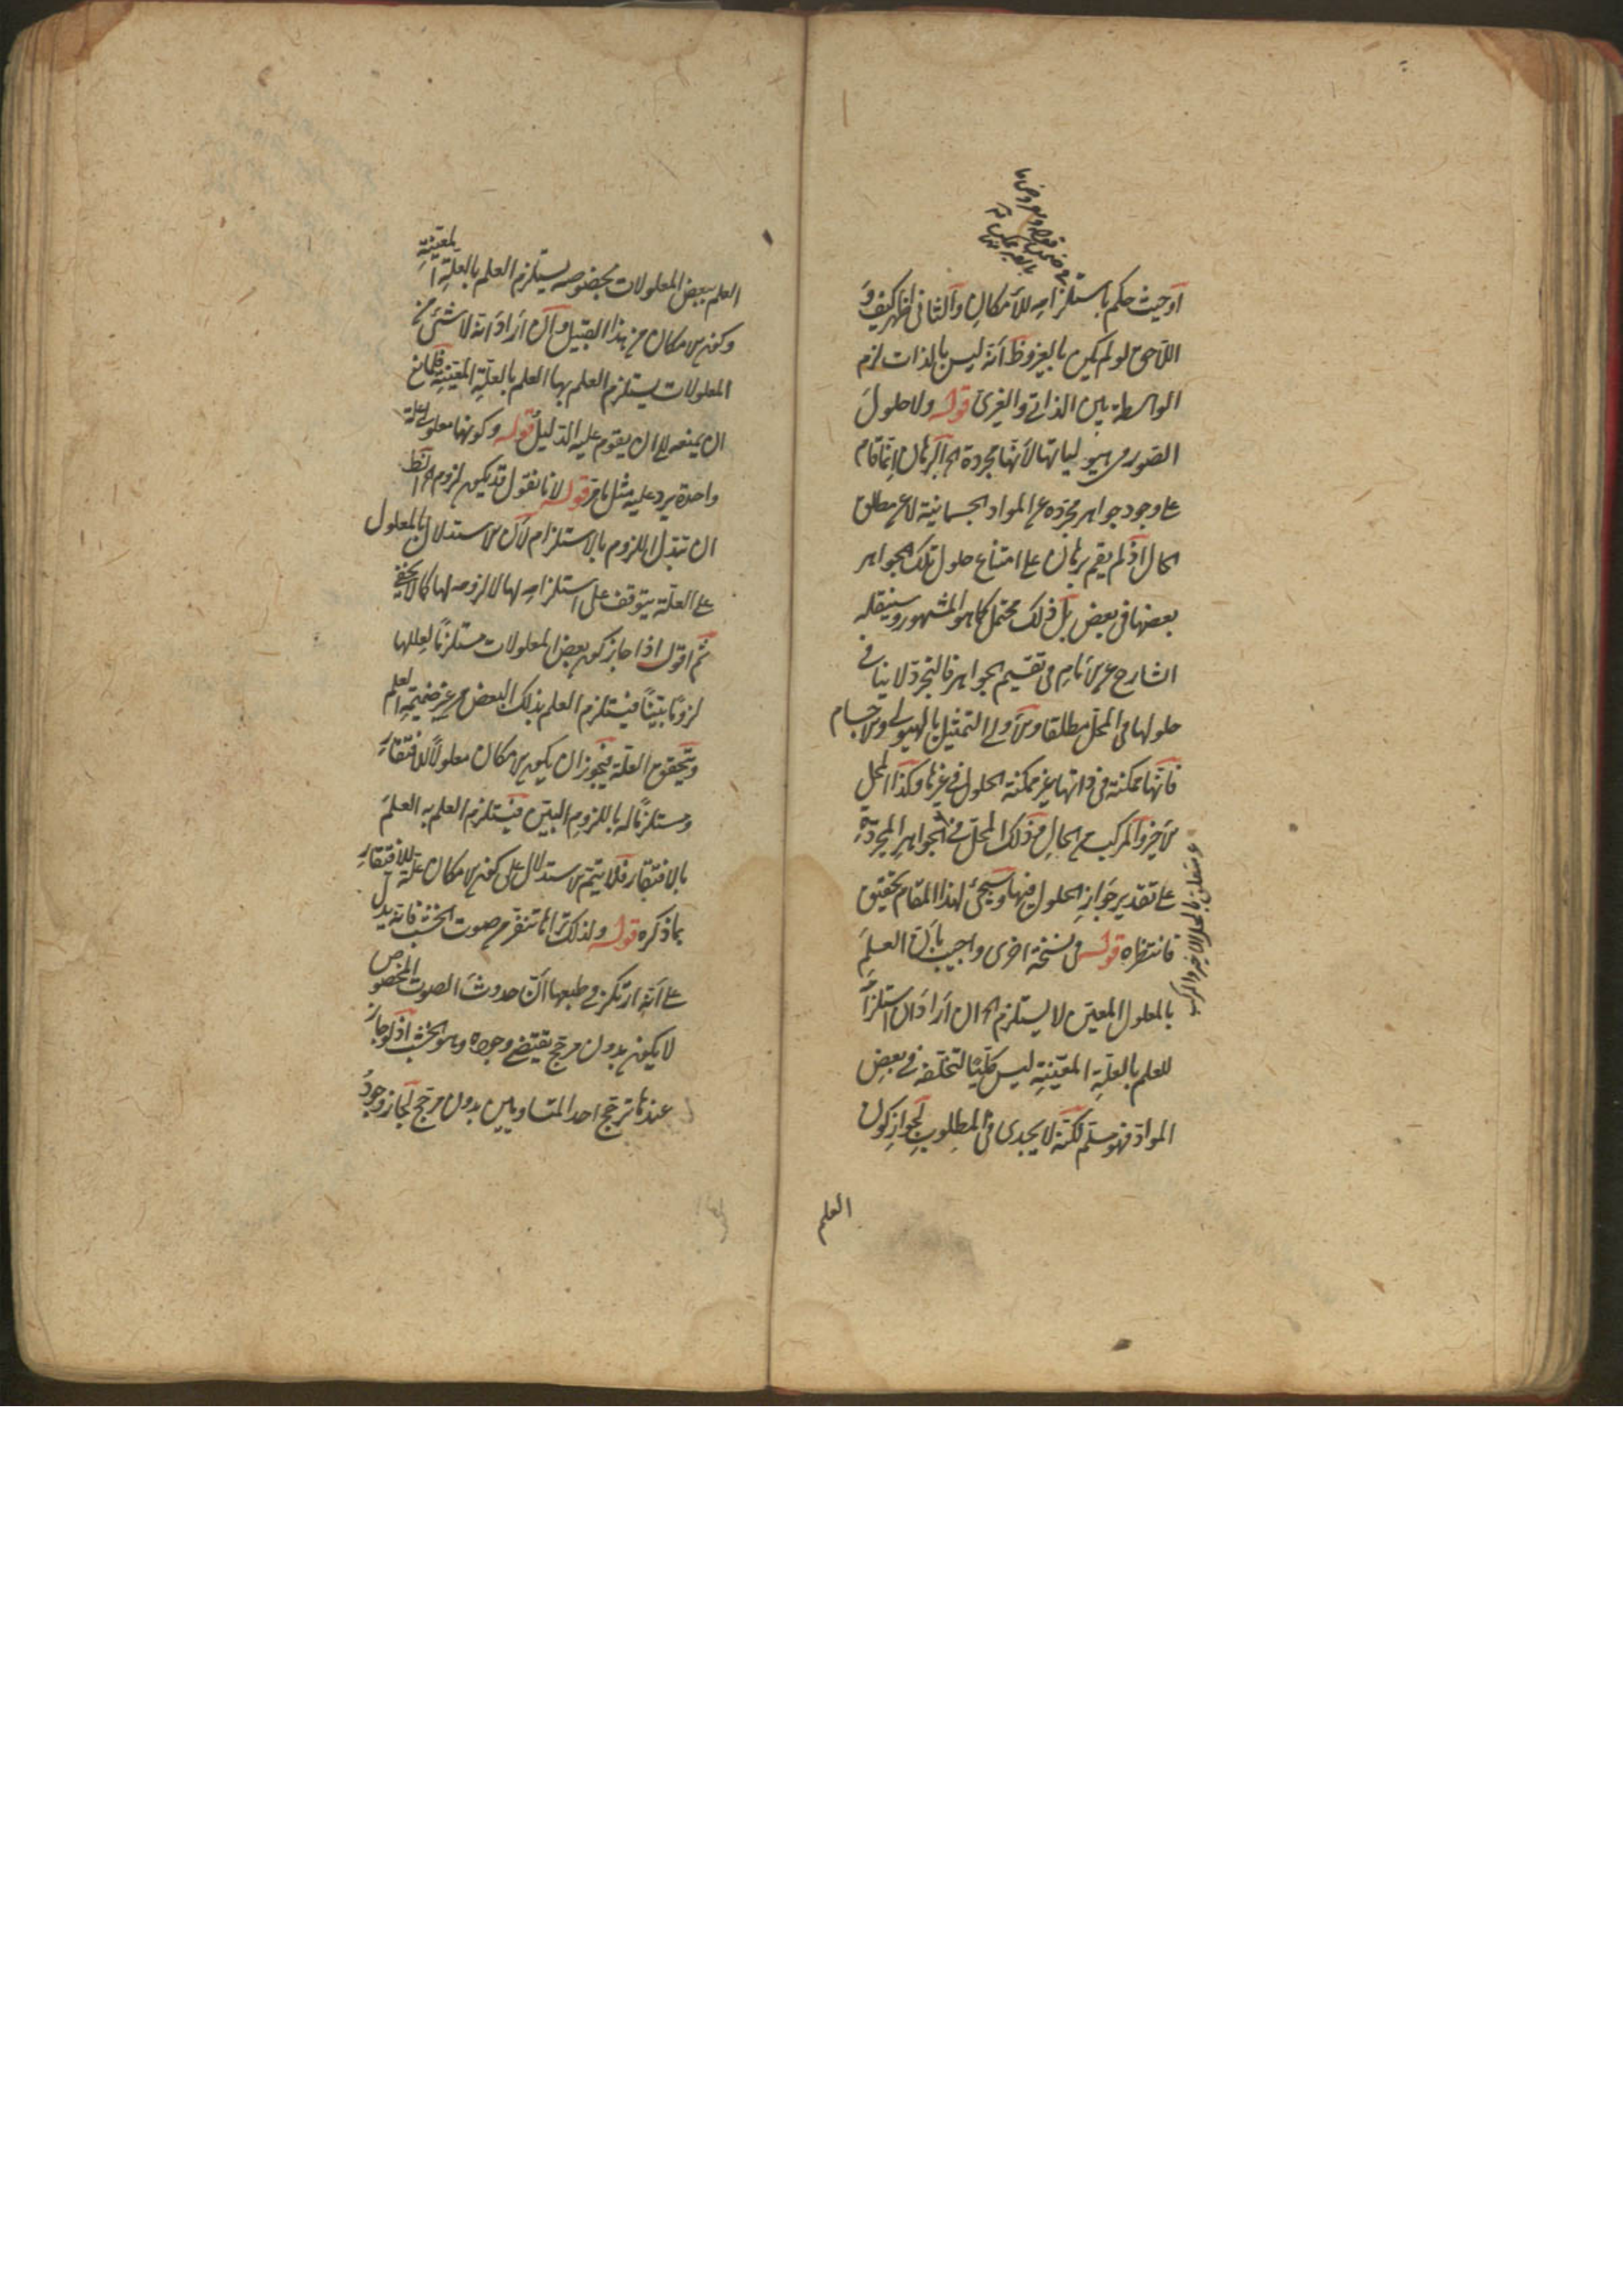 أو حيث حكم باستلزامه للأمكان والثاني اظهر كيف و
اللاحق لو لم يكن بالغير وظ أنه ليس بالذات لزم
الواسطة بين الذاتي والغيري قوله ولا حلول
الصور في هيولياتها لأنها مجردة الخ البرهان إنما قام
على وجود جواهر مجرده عن المواد الجسمانية لا عن مطلق
المحال اذ لم يقم برهان على امتناع حلول تلك الجواهر
بعضها في بعض بل ذلك محتمل كما هو المشهور وسينقله
الشارح عن الأمام في تقسيم الجواهر فالتجرد لا ينافي
حلولها في المحل مطلقا والأولى التمثيل بالهيولى والاجسام
فانها ممكنة في ذاتها غير ممكنة الحلول في غيرها وكذا المحل
الأخير والمركب من الحال من ذلك المحل في الجواهر المجردة
على تقدير جواز الحلول فيها وسيجئ لهذا المقام تحقيق
فانتظره قوله في نسخة اخرى واجيب بأن العلم
بالمعلول المعين لا يستلزم الخ ان أراد أن استلزامه
للعلم بالعلة المعينة ليس كليا لتخلفه في بعض
المواد فهو مسلم لكنه لا يجدي في المطلوب لجواز كون
العلم
العلم ببعض المعلولات بخصوصه يستلزم العلم بالعلة المعينة
وكون الامكان من هذا القبيل وان أراد أنه لا شئ من
المعلولات يستلزم العلم بها العلم بالعلة المعينة فلمانع
ان يمنعه الى ان يقوم عليه الدليل قوله وكونها معلولي علة
واحدة يرد عليه مثل ما مر قوله لانا نقول قد يكون لزوم الخ الظ
ان تبدل اللزوم بالاستلزام لأن الاستدلال بالمعلول
على العلة يتوقف على استلزامه لها لا لزومه لها كما لا يخفى
ثم اقول اذا جاز كون بعض المعلولات مستلزما لعللها
لزوما بينا فيستلزم العلم بذلك البعض من غير ضميمة العلم
وتحقق العلة فيجوز ان يكون الامكان معلولا للافتقار
ومستلزما له باللزوم البين فيستلزم العلم به العلم
بالافتقار فلا يتم الاستدلال على كون الامكان علة للافتقار
بما ذكره قوله ولذلك تراها تنفر من صوت الخشب فانه يدل
على أنه ارتكز في طبعها أن حدوث الصوت المخصوص
لا يكون بدون مرجح يقتضي وجوده وهو الخشب اذ لو جاز
عندها ترجح احد المتساويين بدون مرجح لجاز وجود